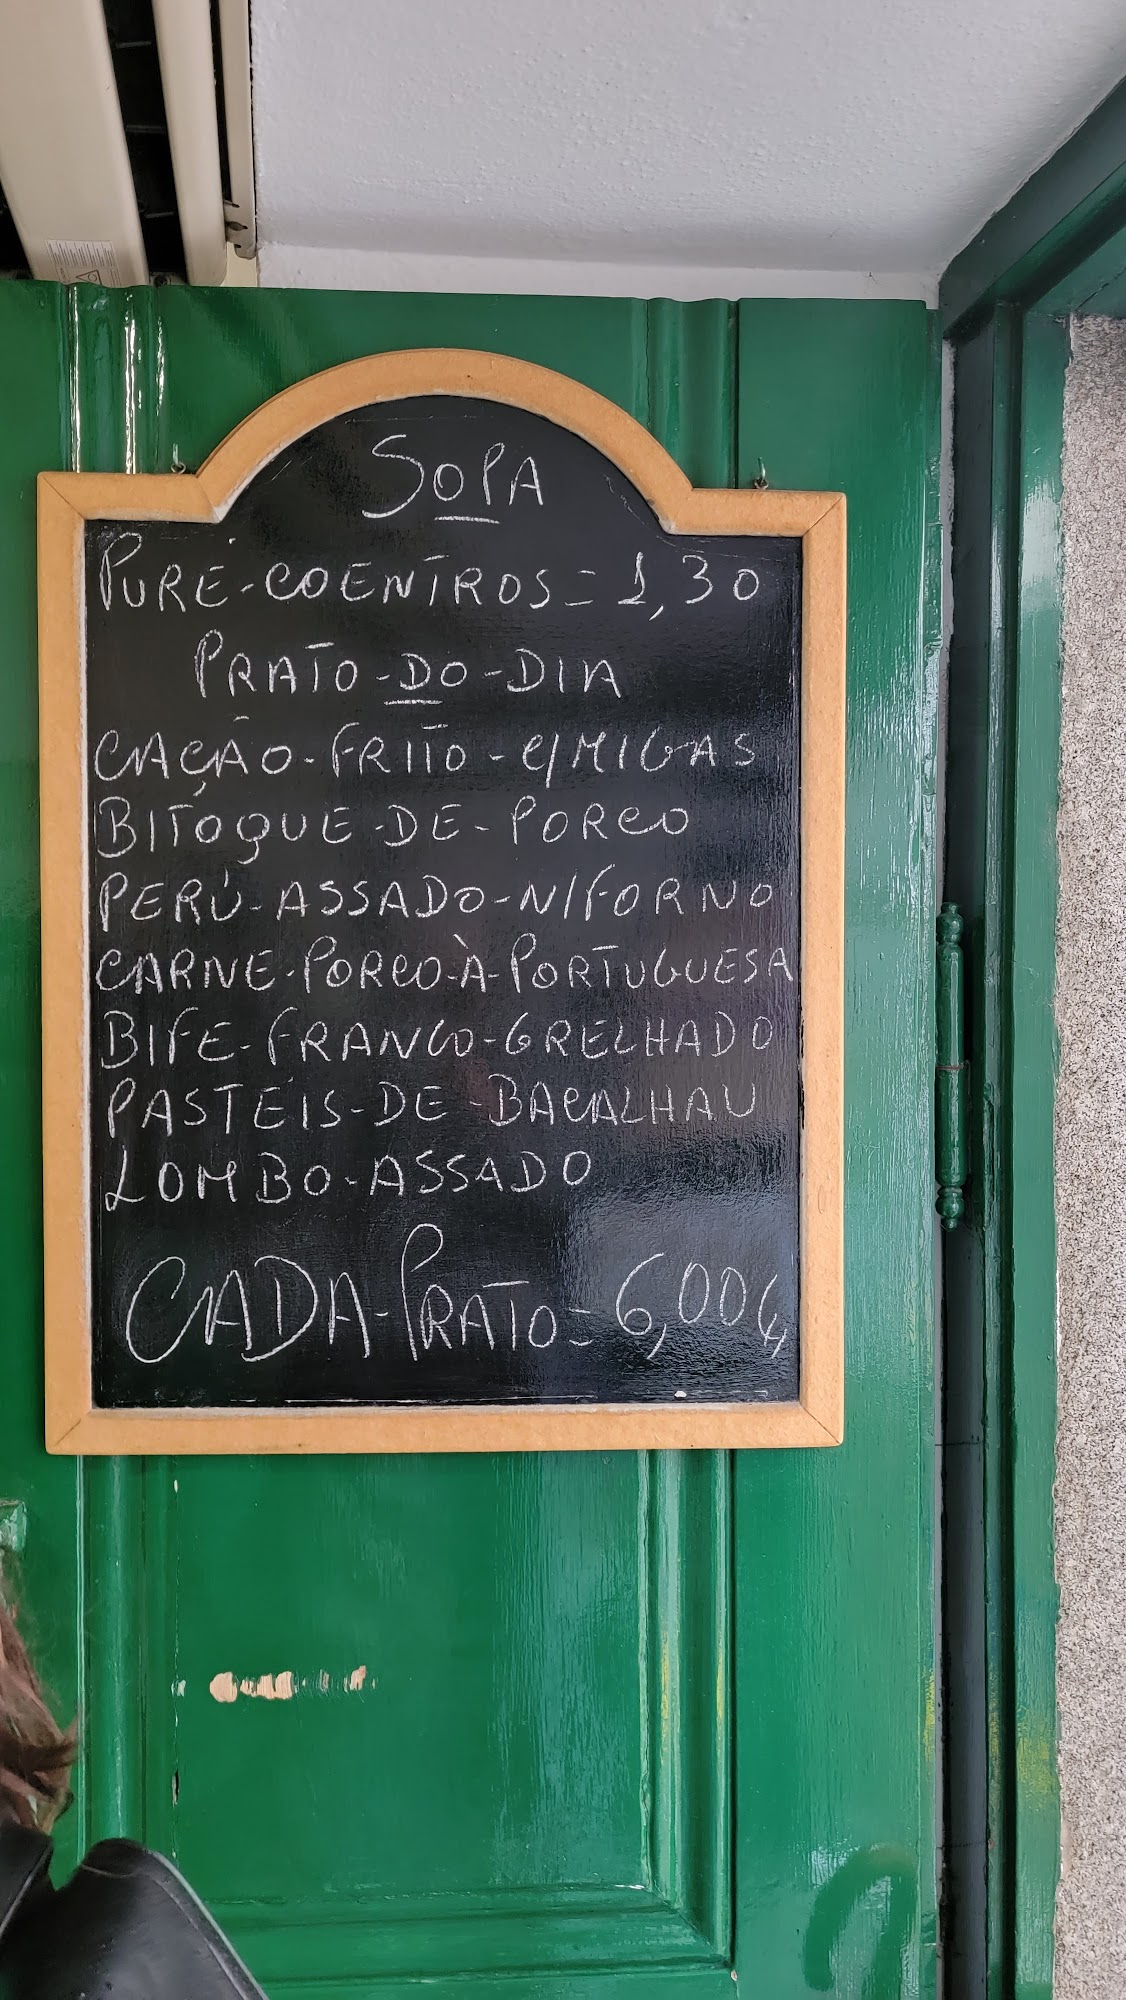 SOPA
PURÉ-COENTROS = 1,30
PRATO-DO-DIA
CAÇÃO-FRITO-C/MIGAS
BITOQUE-DE-PORCO
PERÚ-ASSADO-N/FORNO
CARNE-PORCO-À-PORTUGUESA
BIFE-FRANGO-GRELHADO
PASTÉIS-DE-BACALHAU
LOMBO-ASSADO
CADA-PRATO = 6,00€